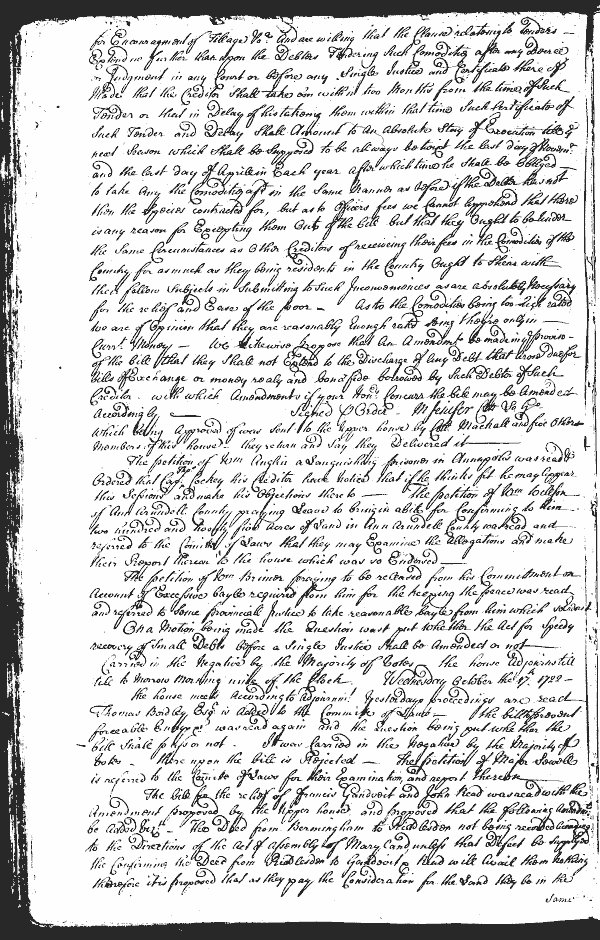 for Encouragment of Tillage &c And are willing that the Clause relateing to Tenders
Extend no further than upon the Debtors Tendering Such Comoditys after any Decree
or Judgment in any Court or before any Single Justice and Certificate thereof
Made that the Creditor Shall take em within two Months from the time of Such
Tender or that in Delay of his takeing them within that time Such Certificate of
Such Tender and Delay Shall Amount to An Absolute Stay of Execution till ye
next Season which Shall be Supposed to be always betwixt the last Day of
and the last Day of Aprile in Each year after which time he Shall be Obliged
to take Any the Comoditys afd in the Same Manner as before if the Debtor has not
then the Species contracted for, but as to Officers fees we Cannot apprehend that there
is any reason for Excepting them Out of the bill but that they Ought to be under
the Same Circumstances as Other Creditors of receiveing their fees in the Comoditys of the
Country for asmuch as they being residents in the Country Ought to Share with
their fellow Subjects in Submitting to Such Inconveniences as are absolutely Necessary
for the relief and Ease of the poor — As to the Comoditys being too high rated
we are of Opinion that they are reasonably Enough rated being they're only in
Currt. Money — We Likewise propose that An Amendmt be made in ye
of the bill that they Shall not Extend to the Discharge of Any Debt that arose due for
bills of Exchange or money realy and bona fide borrowed by Such Debtor of Such
Creditor — with which Amendments if your Honrs. Concurr the bill may be Amended
Accordingly — Signed P Order — M Jenifer
Which being Approved of was Sent to the Upper house by Mackall and five Other
Members of this house — they return and Say they Delivered it —
The petition of Wm a Languishing prisoner in Annapolis was read &
Ordered that Capt. his Creditor have Notice that if he thinks fit he may Appear
this Sessions and make his Objections thereto — The petition of Wm
of Ann Arundell County praying Leave to bring in a bill for Confirming to him
two hundred and Acres of Land in Ann Arundell County was read and
referred to the Comitte of Laws that they may Examine the Allegations and make
their Report thereon to the house which was so Endorsed —
The petition of Wm Brimer praying to be released from his Commitment on
Account of Excessive bayle required from him for the keeping the peace was read
and referred to Some provincial Justice to take reasonable bayle from him
On a Motion being made the Question was put whether the Act for Speedy
recovery of Small Debts before a Single Justice Shall be Amended or not —
Carried in the Negative by the Majority of Votes — the house Adjorns till
till to Morrow Morning nine of the Clock Wednesday October the 17. 1722 —
the house meets According to Adjornmt. Yesterdays proceedings are read
Thomas Bordley Esqr. is Added to the Committe of Laws — the bill to prevent
forceable was read again and the Question being put whether the
bill Shall pass or not — It was Carried in the Negative by the Majority of
Votes — Thereupon the bill is Rejected — The petition of Major Sewell
is referred to the Comitte of Laws for their Examination, and report thereon
The bill for the relief of Francis Gandovit and John Read was read with the
Amendment proposed by the Upper house and proposed that the following Amendmt.
be Added Vizt. — The Deed from Bermingham to not being recorded according
to the Directions of the Act of Assembly of Maryland unless that Defect be Supplyed
the Confirming the Deed from to Gandovit & Read will Avail them nothing
therefore it is proposed that as they pay the Consideration for the Land they be in the
Same